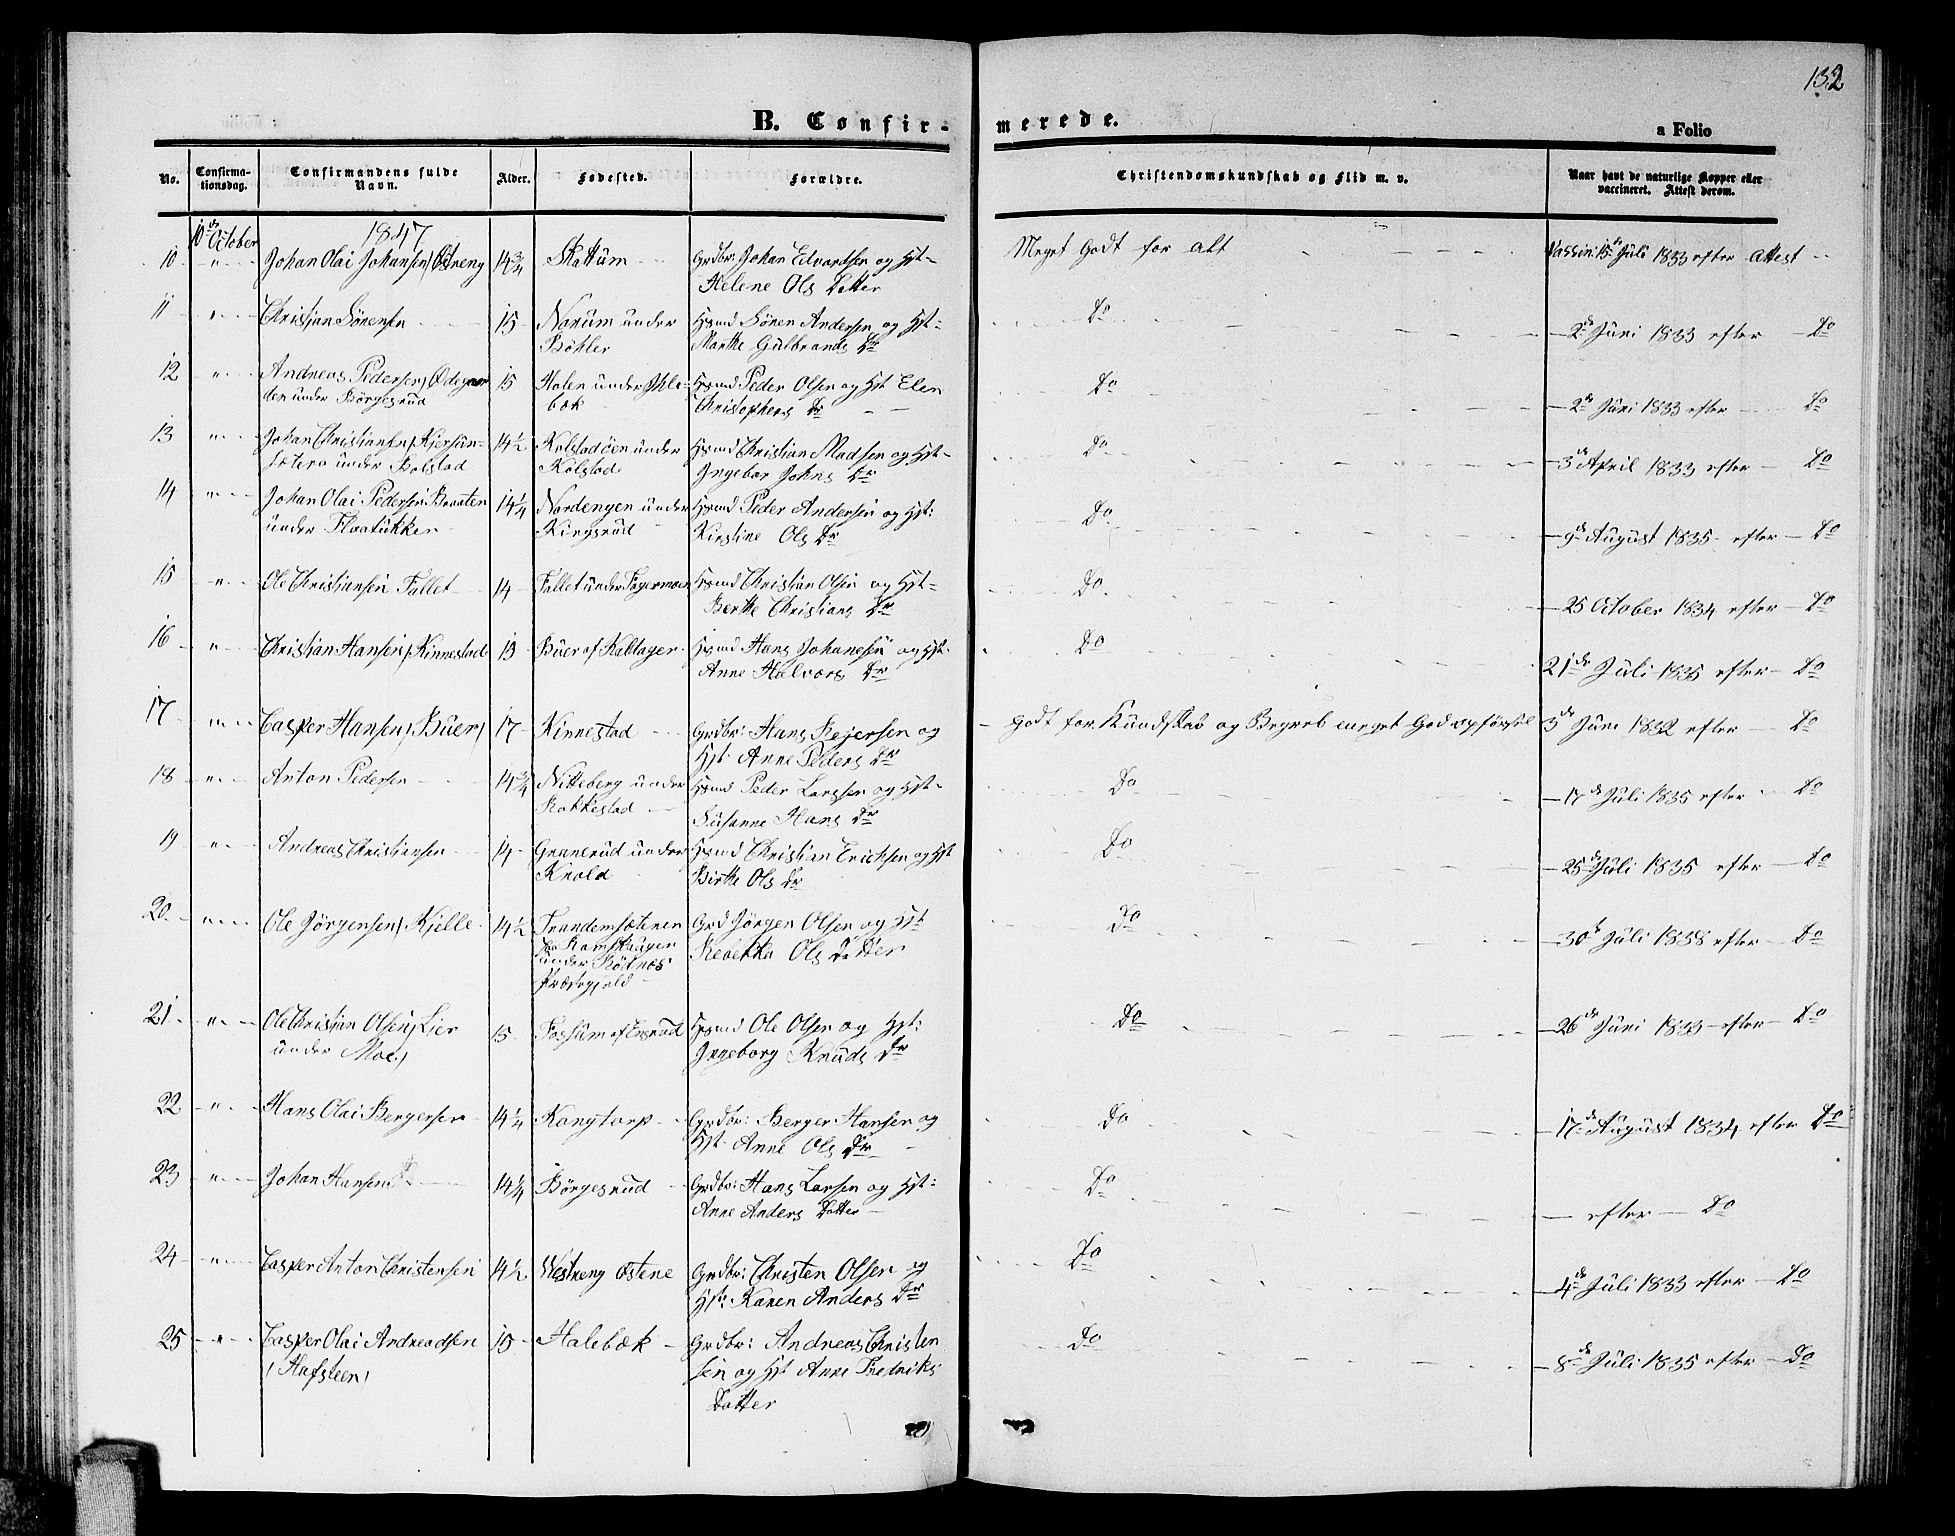 132
B. Confirmerede.
a Folio
No. Confirmationsdag. Confirmandens fulde Navn. Alder. Fødested. Forældre. Christendomskundskab og Flid m. v. Naar havt de naturlige Kopper eller vaccineret. Attest derom.
10de October 1847
10 " Johan Olai Johansen / Østreng 14 3/4 Skattum Grdbr: Johan Edvardsen og Hst- Meget Godt for alt Vassin: 15de Juli 1833 efter Attest
Helene Ols Datter
11 " Christian Sörensen 15 Narum under Hsmd Sören Andersen og Hst- Do 2de Juni 1833 efter Do
Böhler Marthe Gulbrands Dr
12 " Andreas Pedersen / Ødegaar 15 Holen under Hsmd Peder Olsen og Hst Elen Do 2de Juni 1833 efter Do
den under Börgesrud bæk Christophers Dr
13 " Johan Christiansen / Kjersun- 14 1/2 Kolstadöen under Hsmd Christian Madsen og Hst- Do 3de April 1833 efter Do
sætera under Bolstad Kolstad Ingebor Johns Dr
14 " Johan Olai Pedersen Braaten 14 1/4 Nordengen under Hsmd Peder Andersen og Hst: Do 9de August 1835 efter Do
under Kingsrud Kirstine Ols Dr
15 " Ole Christiansen Fallet 14 Fallet under Fagermoen Hsmd Christian Olsen og Hst- Do 25 October 1834 efter Do
Berthe Christians Dr
16 " Christian Hansen / Kinnestad 13 Buer af Kallager Hsmd Hans Johanesen og Hst. Do 21de Juli 1835 efter Do
Anne Halvors Dr
17 " Casper Hansen / Buer / 17 Kinnestad Grdbr: Hans Rejersen og Godt for Kundskab og Begreb meget God opförsel 3de Juni 1832 efter Do
Hst Anne Peders Dr
18 " Anton Pedersen 14 3/4 Nitteberg under Hsmd Peder Larssen og Hst- Do 17de Juli 1835 efter Do
Rakkestad Susanne Hans Dr
19 " Andreas Christiansen 14 Granerud under Hsmd Christian Ericksen og Hst Do 25de Juli 1835 efter Do
Knold Birthe Ols Dr
20 " Ole Jörgensen / Kjelle 14 1/2 Trandemsæteren Grd Jörgen Olsen og Hst Do 30de Juli 1838 efter Do
under Rödnæs Rebekka Ols Datter
Præstegjeld
21 " Ole Christian Olsen / Lier 15 Fossum af Engrud Hsmd Ole Olsen og Hst: Do 26de Juni 1833 efter Do
under Moe / Ingeborg Knuds Dr
22 " Hans Olai Bergersen 14 1/4 Kongtorp Grdbr: Berger Hansen og Do 17de August 1834 efter Do
Hst- Anne Ols Dr
23 " Johan Hansen 14 1/4 Börgesrud Grdbr: Hans Larsen og Hst: Do efter Do
Anne Anders Datter
24 " Casper Anton Christensen 14 1/2 Westreng østene Grdbr: Christen Olsen og Do 4de Juli 1833 efter Do
Hst: Karen Anders Dr
25 " Casper Olai Andreadsen 15 Halebæk Grdbr: Andreas Christen Do 8de Juli 1835 efter Do
/ Hafsteen / sen og Hst Anne Fredriks
Datter